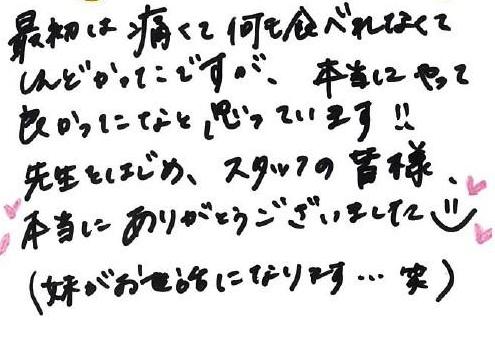 最初は痛くて何も食べれなくて
しんどかったですが、本当にやって
良かったなと思っています!!
先生をはじめ、スタッフの皆様、
本当にありがとうございました
(妹がお世話になります…笑)